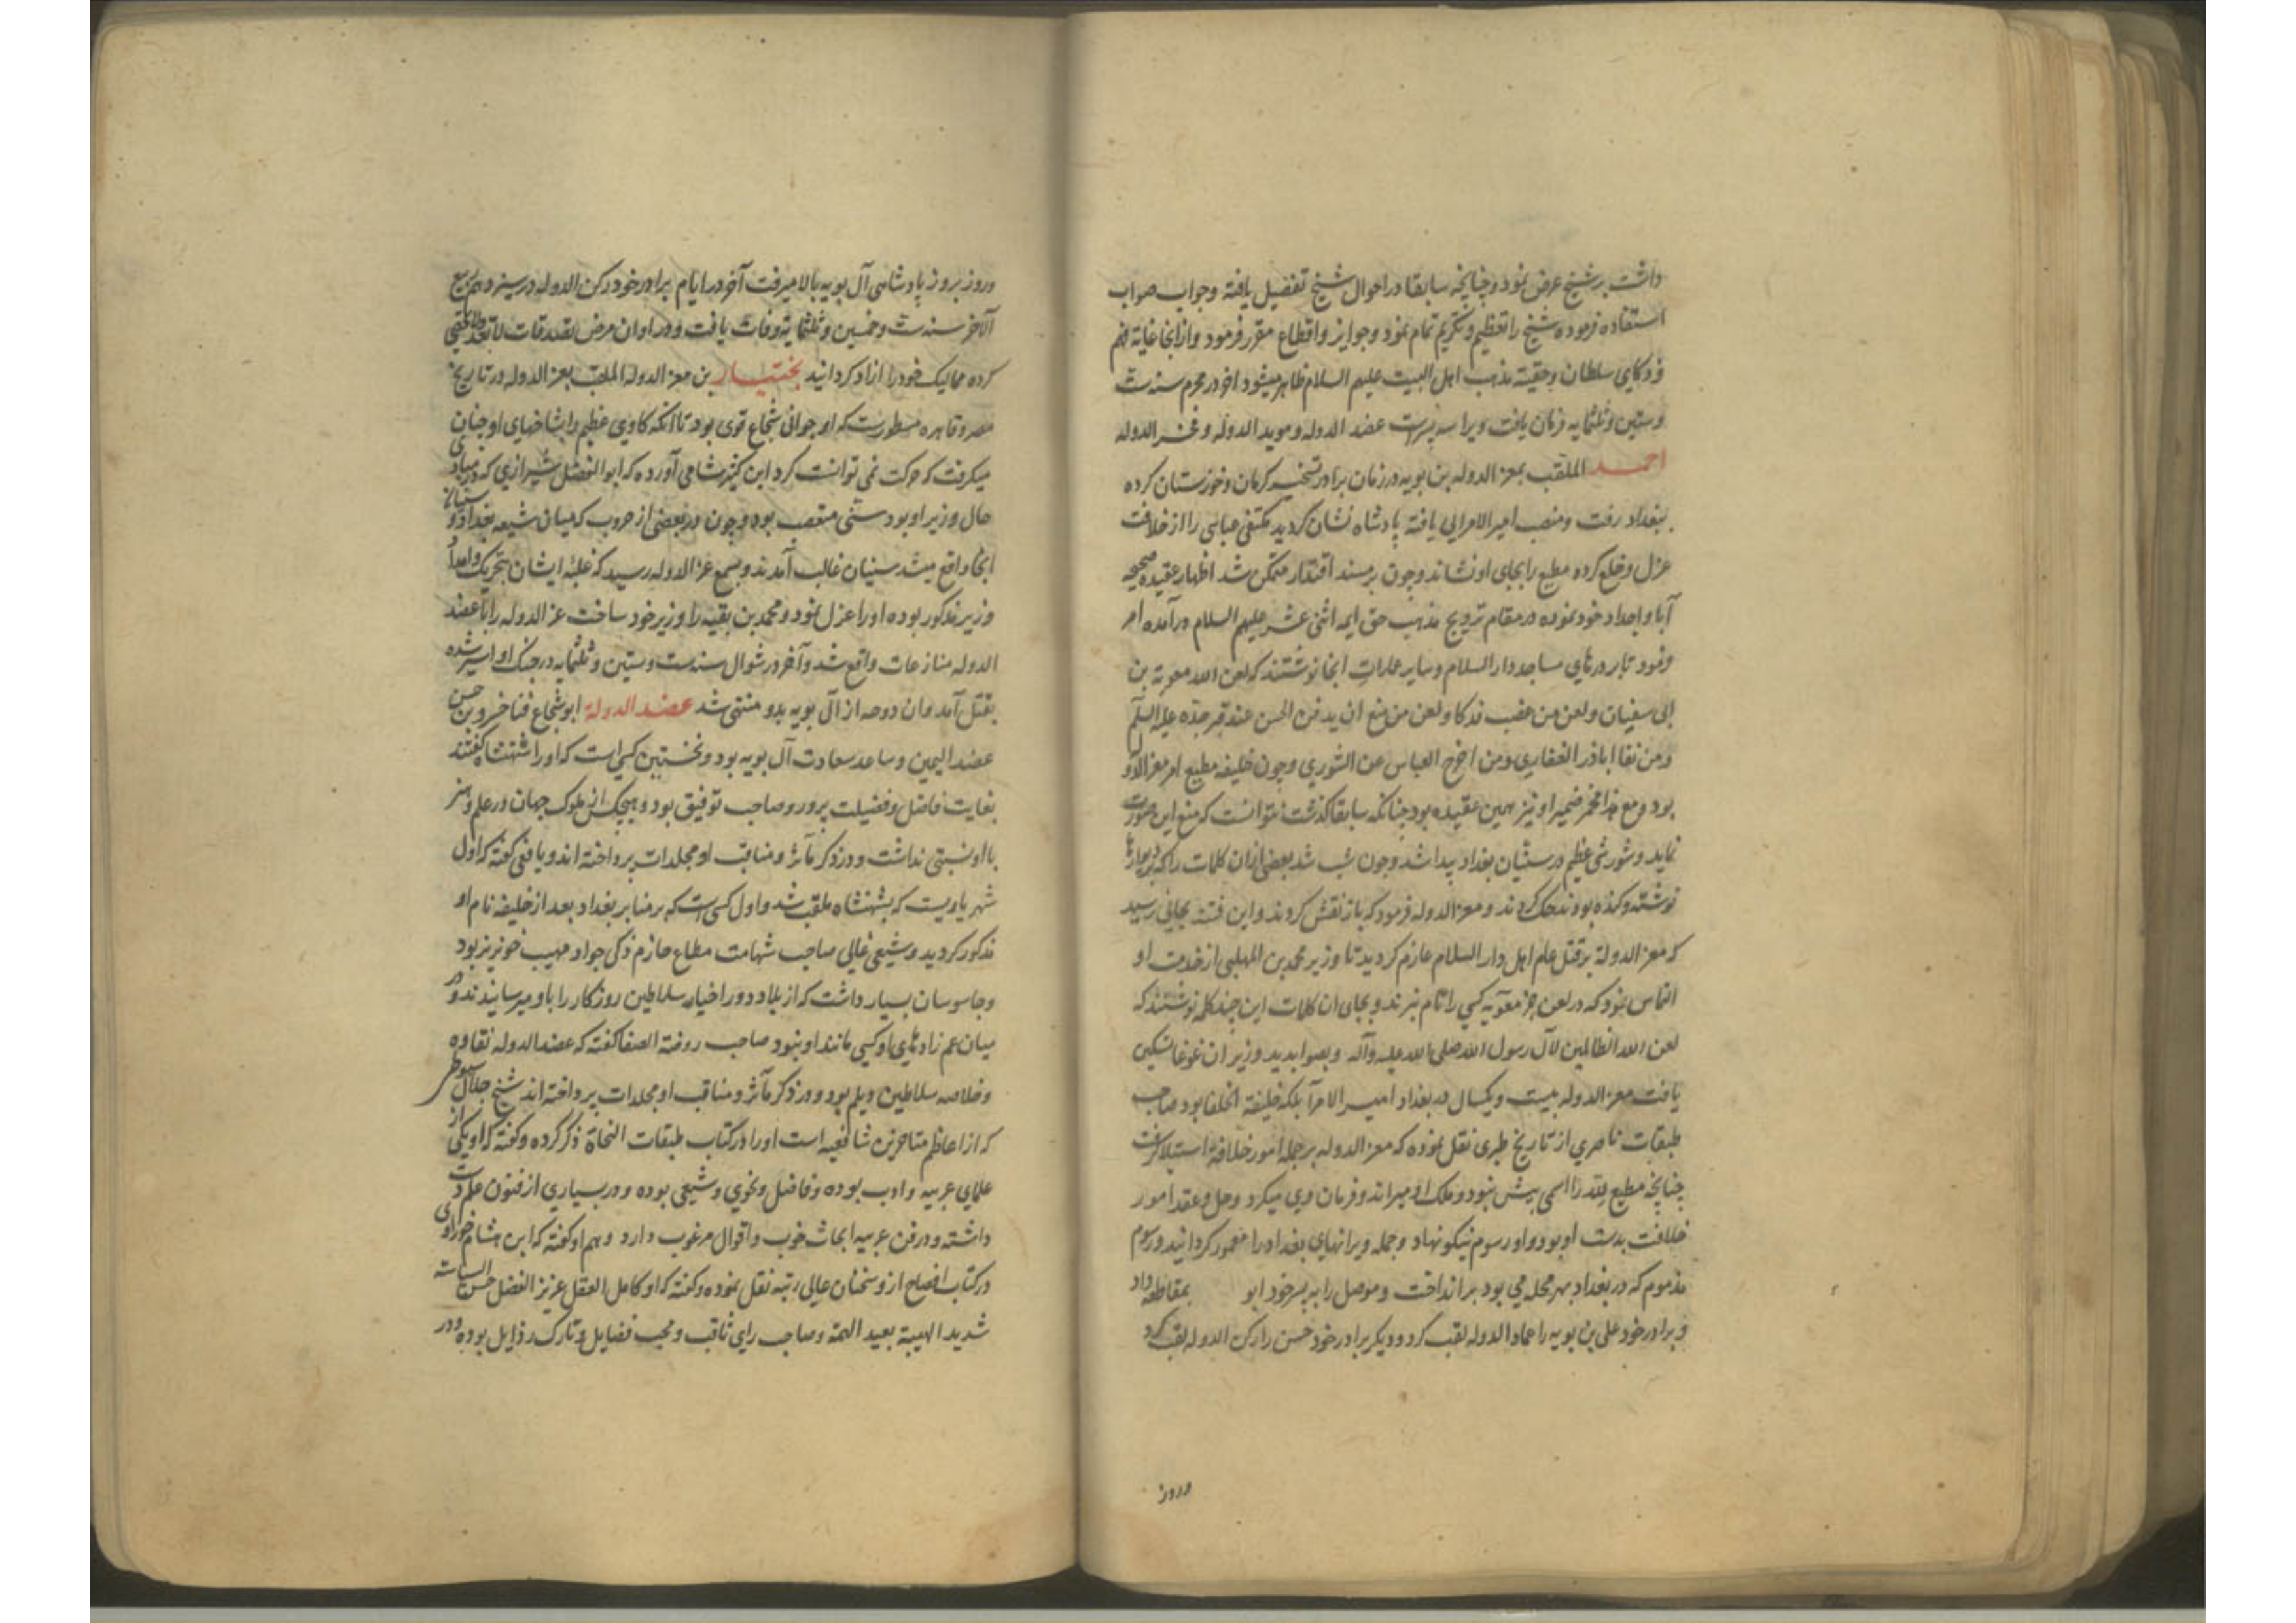 داشت بر شیخ عرض نمود و چنانچه سابقا در احوال شیخ تفصیل یافته وجواب صواب
استفاده فرموده شیخ را تعظیم و تکریم تمام نمود وجوایز واقطاع مقرر فرمود وازانجا غایة فهم
وذکای سلطان وحقیة مذهب اهل البیت علیهم السلام ظاهر میشود اخر در محرم سنه ست
وستین وثلثمایه فرمان یافت ویرا سه پسرست عضد الدوله ومویدالدوله وفخر الدوله
احمد الملقب بمعز الدوله بن بویه در زمان برادر تسخیر کرمان وخوزستان کرده
ببغداد رفت ومنصب امیر الامرایی یافته پادشاه نشان کردید مکتفی عباسی را از خلافت
عزل وخلع کرده مطیع را بجای او نشاند وچون بر مسند اقتدار متمکن شد اظهار عقیده صحیحه
آبا واجداد خود نموده در مقام ترویج مذهب حق ایمه اثنی عشر علیهم السلام درآمده امر
فرمود تا بر درهای مساجد دار السلام وسایر عمارات انجا نوشتند که لعن الله معویة بن
ابی سفیان ولعن من غصب فدکا ولعن من منع ان یدفن الحسن عند قبر جده علیه السلم
ومن نفا اباذر الغفاری ومن اخرج العباس عن الشوری وچون خلیفه مطیع امر معز الدوله
بود ومع هذا مخمر ضمیر او نیز همین عقیده بود چنانکه سابقا کذشت نتوانست که منع این صورت
نماید وشورشی عظیم در سنیان بغداد پیدا شد وچون شب شد بعضی ازان کلمات را که بر دیوارها
نوشته وکنده بودند حک کردند ومعز الدوله فرمود که باز نقش کردند واین فتنه بجایی رسید
که معز الدولة بر قتل عام اهل دار السلام عازم کردید تا وزیر محمد بن المهلبی از خدمت او
التماس نمود که در لعن جز معویه کسی را نام نبرند وبجای ان کلمات این چند کلمه نوشتند که
لعن الله الظالمین لآل رسول الله صلی الله علیه وآله وبصوابدید وزیر ان غوغا تسکین
یافت معز الدوله بیست ویکسال در بغداد امیر الامرآ بلکه خلیفة الخلفا بود صاحب
طبقات ناصری از تاریخ طبری نقل نموده که معز الدوله بر جمله امور خلافة استیلا کرفت
چنانچه مطیع لله را اسمی بیش نبود وملک او میراند وفرمان وی میکرد وحل وعقد امور
خلافت بدست او بود واو رسوم نیکو نهاد وجمله ویرانهای بغداد را معمور کردانید ورسوم
مذموم که در بغداد بهر محله می بود برانداخت وموصل را به پسر خود ابو بمقاطعه داد
وبرادر خود علی بن بویه را عماد الدوله لقب کرد ودیکر برادر خود حسن را رکن الدوله لقب کرد
وروز
وروز بروز پادشاهی آل بویه بالا میرفت آخر در ایام برادر خود رکن الدوله در سیزدهم ربیع
الآخر سنه ست وخمسین وثلثمایة وفات یافت ودر اوان مرض تصدقات
کرده ممالیک خود را ازاد کردانید بختیار بن معز الدوله الملقب بعز الدوله در تاریخ
مصر وقاهره مسطورست که او جوانی شجاع قوی بود تا آنکه کاوی عظیم را بشاخهای او چنان
میکرفت که حرکت نمی توانست کرد ابن کثیر شامی آورده که ابو الفضل شیرازی که در مبادی
حال وزیر او بود سنی متعصب بود وچون در بعضی از حروب که میان شیعه بغداد وسنیان
انجا واقع میشد سنیان غالب آمدند وبسمع عز الدوله رسید که غلبه ایشان بتحریک وامداد
وزیر مذکور بوده او را عزل نمود ومحمد بن بقیه را وزیر خود ساخت عز الدوله را با عضد
الدوله منازعات واقع شد وآخر در شوال سنه ست وستین وثلثمایه در جنک او اسیر شده
بقتل آمد وان دوحه از آل بویه بدو منتهی شد عضد الدولة ابو شجاع فناخسرو بن حسن
عضد الیمین وساعد سعادت آل بویه بود ونخستین کسی است که او را شهنشاه کفتند
بغایت فاضل وفضیلت پرور وصاحب توفیق بود وهیچکس از ملوک جهان در علم وهنر
با او نسبتی نداشت ودر ذکر مآثر ومناقب او مجلدات پرداخته اند ویافعی کفته که اول
شهریاریست که بشهنشاه ملقب شد واول کسی است که بر منابر بغداد بعد از خلیفه نام او
مذکور کردید وشیعی غالی صاحب شهامت مطاع حازم ذکی جواد مهیب خونریز بود
وجاسوسان بسیار داشت که از بلاد دور اخبار سلاطین روزکار را باو میرسانیدند ودر
میان عم زادهای او کسی مانند او نبود صاحب روضة الصفا کفته که عضد الدوله نقاوه
وخلاصه سلاطین دیلم بود ودر ذکر مآثر ومناقب او مجلدات پرداخته اند شیخ جلال سیوطی
که از اعاظم متاخرین شافعیه است او را در کتاب طبقات النحاة ذکر کرده وکفته که او یکی از
علمای عربیه وادب بوده وفاضل ونحوی وشیعی بوده ودر بسیاری از فنون علم دست
داشته ودر فن عربیه ابحاث خوب واقوال مرغوب دارد وهم او کفته که ابن هشام
در کتاب افصاح ازو سخنان عالی رتبه نقل نموده وکفته که او کامل العقل عزیز الفضل حسن السیاسة
شدید الهیبة بعید الهمة وصاحب رای ثاقب ومحب فضایل وتارک رذایل بوده ودر